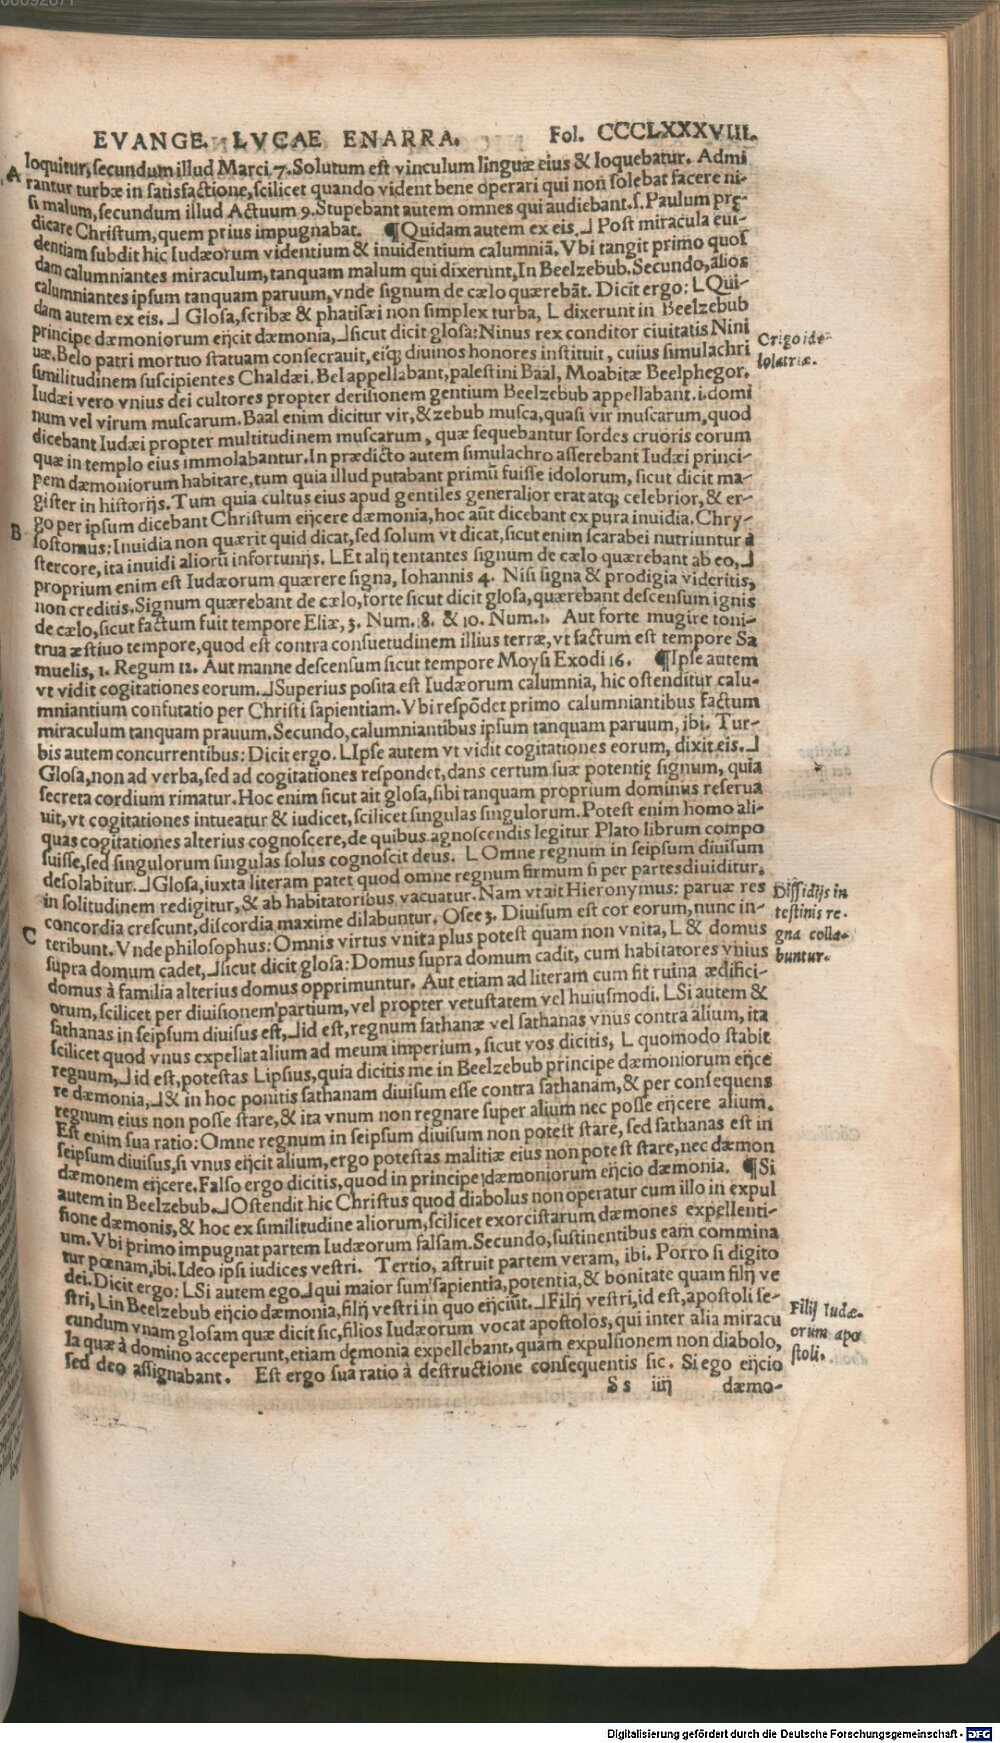 EVANGE. LVCAE ENARRA. Fol. CCCLXXXVIII.
A loquitur, secundum illud Marci 7. Solutum est vinculum linguæ eius & loquebatur. Admi
rantur turbæ in satisfactione, scilicet quando vident bene operari qui non solebat facere ni-
si malum, secundum illud Actuum 9. Stupebant autem omnes qui audiebant. s. Paulum prę-
dicare Christum, quem prius impugnabat. ¶Quidam autem ex eis.⅃ Post miracula eui-
dentiam subdit hic Iudæorum videntium & inuidentium calumniā. Vbi tangit primo quos
dam calumniantes miraculum, tanquam malum qui dixerunt, In Beelzebub. Secundo, alios
calumniantes ipsum tanquam paruum, vnde signum de cælo quærebāt. Dicit ergo: LQui-
dam autem ex eis.⅃ Glosa, scribæ & phatisæi non simplex turba, L dixerunt in Beelzebub
principe dæmoniorum eijcit dæmonia,⅃sicut dicit glosa: Ninus rex conditor ciuitatis Nini
uæ. Belo patri mortuo statuam consecrauit, eiq; diuinos honores instituit, cuius simulachri
similitudinem suscipientes Chaldæi. Bel appellabant, palestini Baal, Moabitæ Beelphegor.
Iudæi vero vnius dei cultores propter derisionem gentium Beelzebub appellabant. i. domi
num vel virum muscarum. Baal enim dicitur vir, & zebub musca, quasi vir muscarum, quod
dicebant Iudæi propter multitudinem muscarum, quæ sequebantur sordes cruoris eorum
quæ in templo eius immolabantur. In prædicto autem simulachro asserebant Iudæi princi-
pem dæmoniorum habitare, tum quia illud putabant primū fuisse idolorum, sicut dicit ma-
gister in historijs. Tum quia cultus eius apud gentiles generalior erat atq; celebrior, & er-
B go per ipsum dicebant Christum eijcere dæmonia, hoc aūt dicebant ex pura inuidia. Chry-
sostomus: Inuidia non quærit quid dicat, sed solum vt dicat, sicut enim scarabei nutriuntur à
stercore, ita inuidi aliorū infortunijs. LEt alij tentantes signum de cælo quærebant ab eo,⅃
proprium enim est Iudæorum quærere signa, Iohannis 4. Nisi signa & prodigia videritis,
non creditis. Signum quærebant de cælo, forte sicut dicit glosa, quærebant descensum ignis
de cælo, sicut factum fuit tempore Eliæ, 3. Num. 8. & 10. Num. 1. Aut forte mugire toni-
trua æstiuo tempore, quod est contra consuetudinem illius terræ, vt factum est tempore Sa
muelis, 1. Regum 12. Aut manne descensum sicut tempore Moysi Exodi 16. ¶Ipse autem
vt vidit cogitationes eorum.⅃Superius posita est Iudæorum calumnia, hic ostenditur calu-
mniantium confutatio per Christi sapientiam. Vbi respōdet primo calumniantibus factum
miraculum tanquam prauum. Secundo, calumniantibus ipsum tanquam paruum, ibi. Tur-
bis autem concurrentibus: Dicit ergo. LIpse autem vt vidit cogitationes eorum, dixit eis.⅃
Glosa, non ad verba, sed ad cogitationes respondet, dans certum suæ potentię signum, quia
secreta cordium rimatur. Hoc enim sicut ait glosa, sibi tanquam proprium dominus reserua
uit, vt cogitationes intueatur & iudicet, scilicet singulas singulorum. Potest enim homo ali-
quas cogitationes alterius cognoscere, de quibus agnoscendis legitur Plato librum compo
suisse, sed singulorum singulas solus cognoscit deus. L Omne regnum in seipsum diuisum
desolabitur.⅃Glosa, iuxta literam patet quod omne regnum firmum si per partes diuiditur,
in solitudinem redigitur, & ab habitatoribus vacuatur. Nam vt ait Hieronymus: paruæ res
concordia crescunt, discordia maxime dilabuntur. Osee 3. Diuisum est cor eorum, nunc in-
C teribunt. Vnde philosophus: Omnis virtus vnita plus potest quam non vnita, L & domus
supra domum cadet,⅃sicut dicit glosa: Domus supra domum cadit, cum habitatores vnius
domus à familia alterius domus opprimuntur. Aut etiam ad literam cum fit ruina ædifici-
orum, scilicet per diuisionem partium, vel propter vetustatem vel huiusmodi. LSi autem &
sathanas in seipsum diuisus est,⅃id est, regnum sathanæ vel sathanas vnus contra alium, ita
scilicet quod vnus expellat alium ad meum imperium, sicut vos dicitis, L quomodo stabit
regnum,⅃id est, potestas Lipsius, quia dicitis me in Beelzebub principe dæmoniorum eijce
re dæmonia,⅃& in hoc ponitis sathanam diuisum esse contra sathanam, & per consequens
regnum eius non posse stare, & ita vnum non regnare super alium nec posse eijcere alium.
Est enim sua ratio: Omne regnum in seipsum diuisum non potest stare, sed sathanas est in
seipsum diuisus, si vnus eijcit alium, ergo potestas malitiæ eius non potest stare, nec dæmon
dæmonem eijcere. Falso ergo dicitis, quod in principe dæmoniorum eijcio dæmonia. ¶Si
autem in Beelzebub.⅃Ostendit hic Christus quod diabolus non operatur cum illo in expul
sione dæmonis, & hoc ex similitudine aliorum, scilicet exorcistarum dæmones expellenti-
um. Vbi primo impugnat partem Iudæorum falsam. Secundo, sustinentibus eam commina
tur pœnam, ibi. Ideo ipsi iudices vestri. Tertio, astruit partem veram, ibi. Porro si digito
dei. Dicit ergo: LSi autem ego⅃qui maior sum sapientia, potentia, & bonitate quam filij ve
stri, Lin Beelzebub eijcio dæmonia, filij vestri in quo eijciūt.⅃Filij vestri, id est, apostoli se-
cundum vnam glosam quæ dicit sic, filios Iudæorum vocat apostolos, qui inter alia miracu
la quæ à domino acceperunt, etiam dęmonia expellebant, quam expulsionem non diabolo,
sed deo assignabant. Est ergo sua ratio à destructione consequentis sic. Si ego eijcio
Ss iiij dæmo-
Origo ido-
lolatriæ.
Dissidijs in
testinis re-
gna colla-
buntur.
Filij Iudæ-
orum apo
stoli.
Digitalisierung gefördert durch die Deutsche Forschungsgemeinschaft - DFG